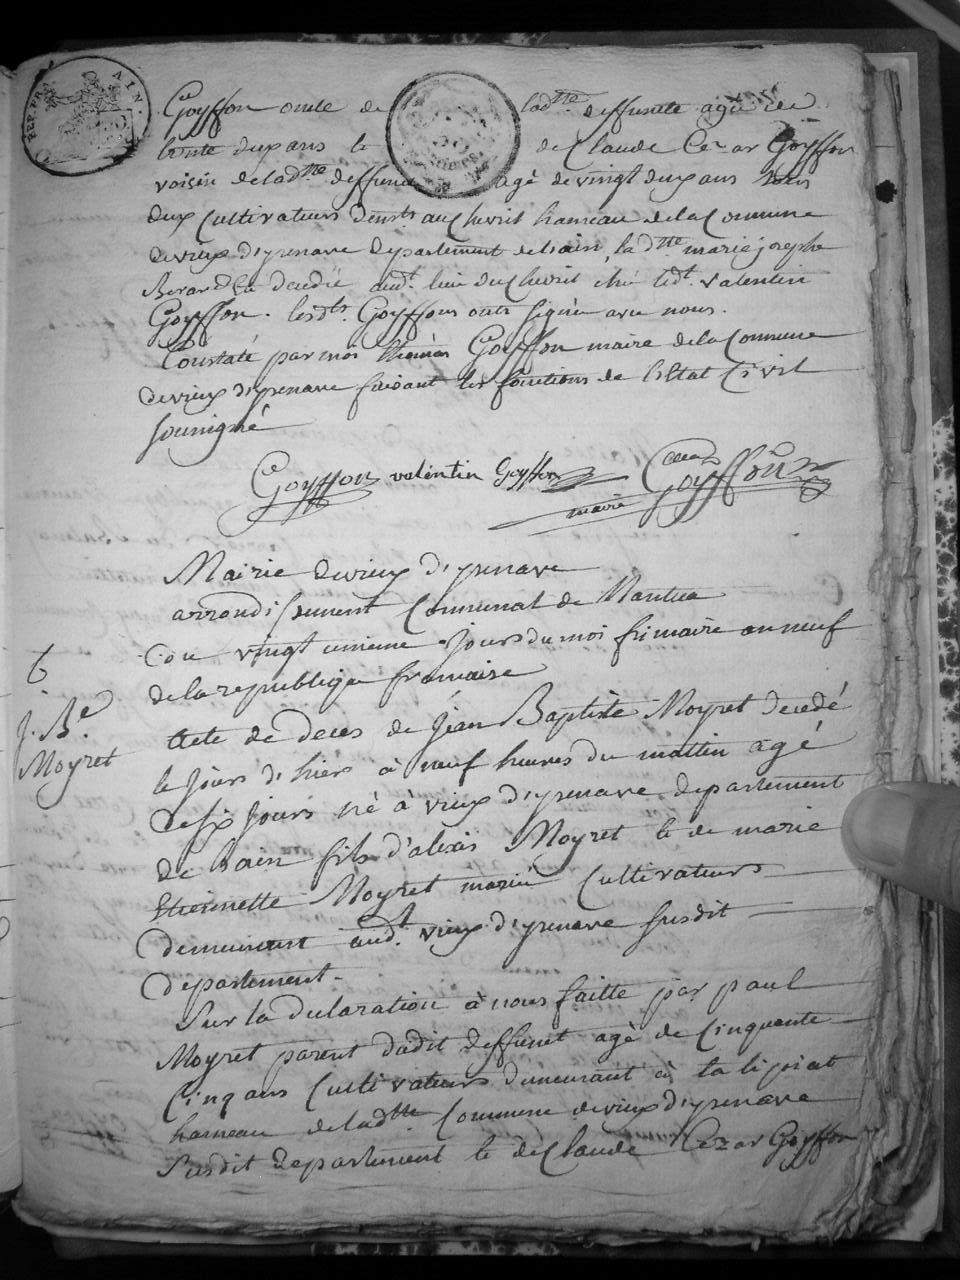 REP. FRA. AIN.
Goyffon oncle de ladtte deffunte agé de
trente deux ans le de Claude Cezar Goyffon
voisin de ladtte deffunte agé de vingt deux ans tous
deux Cultivateurs demts au Chevril hameau de la Commune
de vieux d'izenave Departement de lain, la dtte marie josephe
Berard Ea decedée audt lieu du Chevril ché ledt valentin
Goyffon. lesdts Goyffons onts signée avec nous.
Constaté par moi Goyffon maire de la Commune
de vieux d'izenave faisant les fonctions de letat Civil
sousigné
Goyffon valentin Goyffon Goyffon
maire
Mairie de vieux d'izenave
arrondissement Communal de Nantua
6
Cou vingt unieme jours du moi frimaire an neuf
de la republique francaise
J. Bte
Moyret
Acte de deces de Jean Baptiste Moyret decedé
le jours d'hiers à neuf heures du mattin agé
de six jours né à vieux d'izenave departement
de lain fils d'alexis Moyret le de marie
Etiennette Moyret mariée Cultivateurs
demeurant audt. vieux d'izenave susdit
departement.
Sur la declaration à nous faitte par paul
Moyret parent dudit deffunt agé de Cinquante
Cinq ans Cultivateurs demeurant à
hameau de ladtte Commune de vieux d'izenave
Susdit departement le de Claude Cezar Goyffon